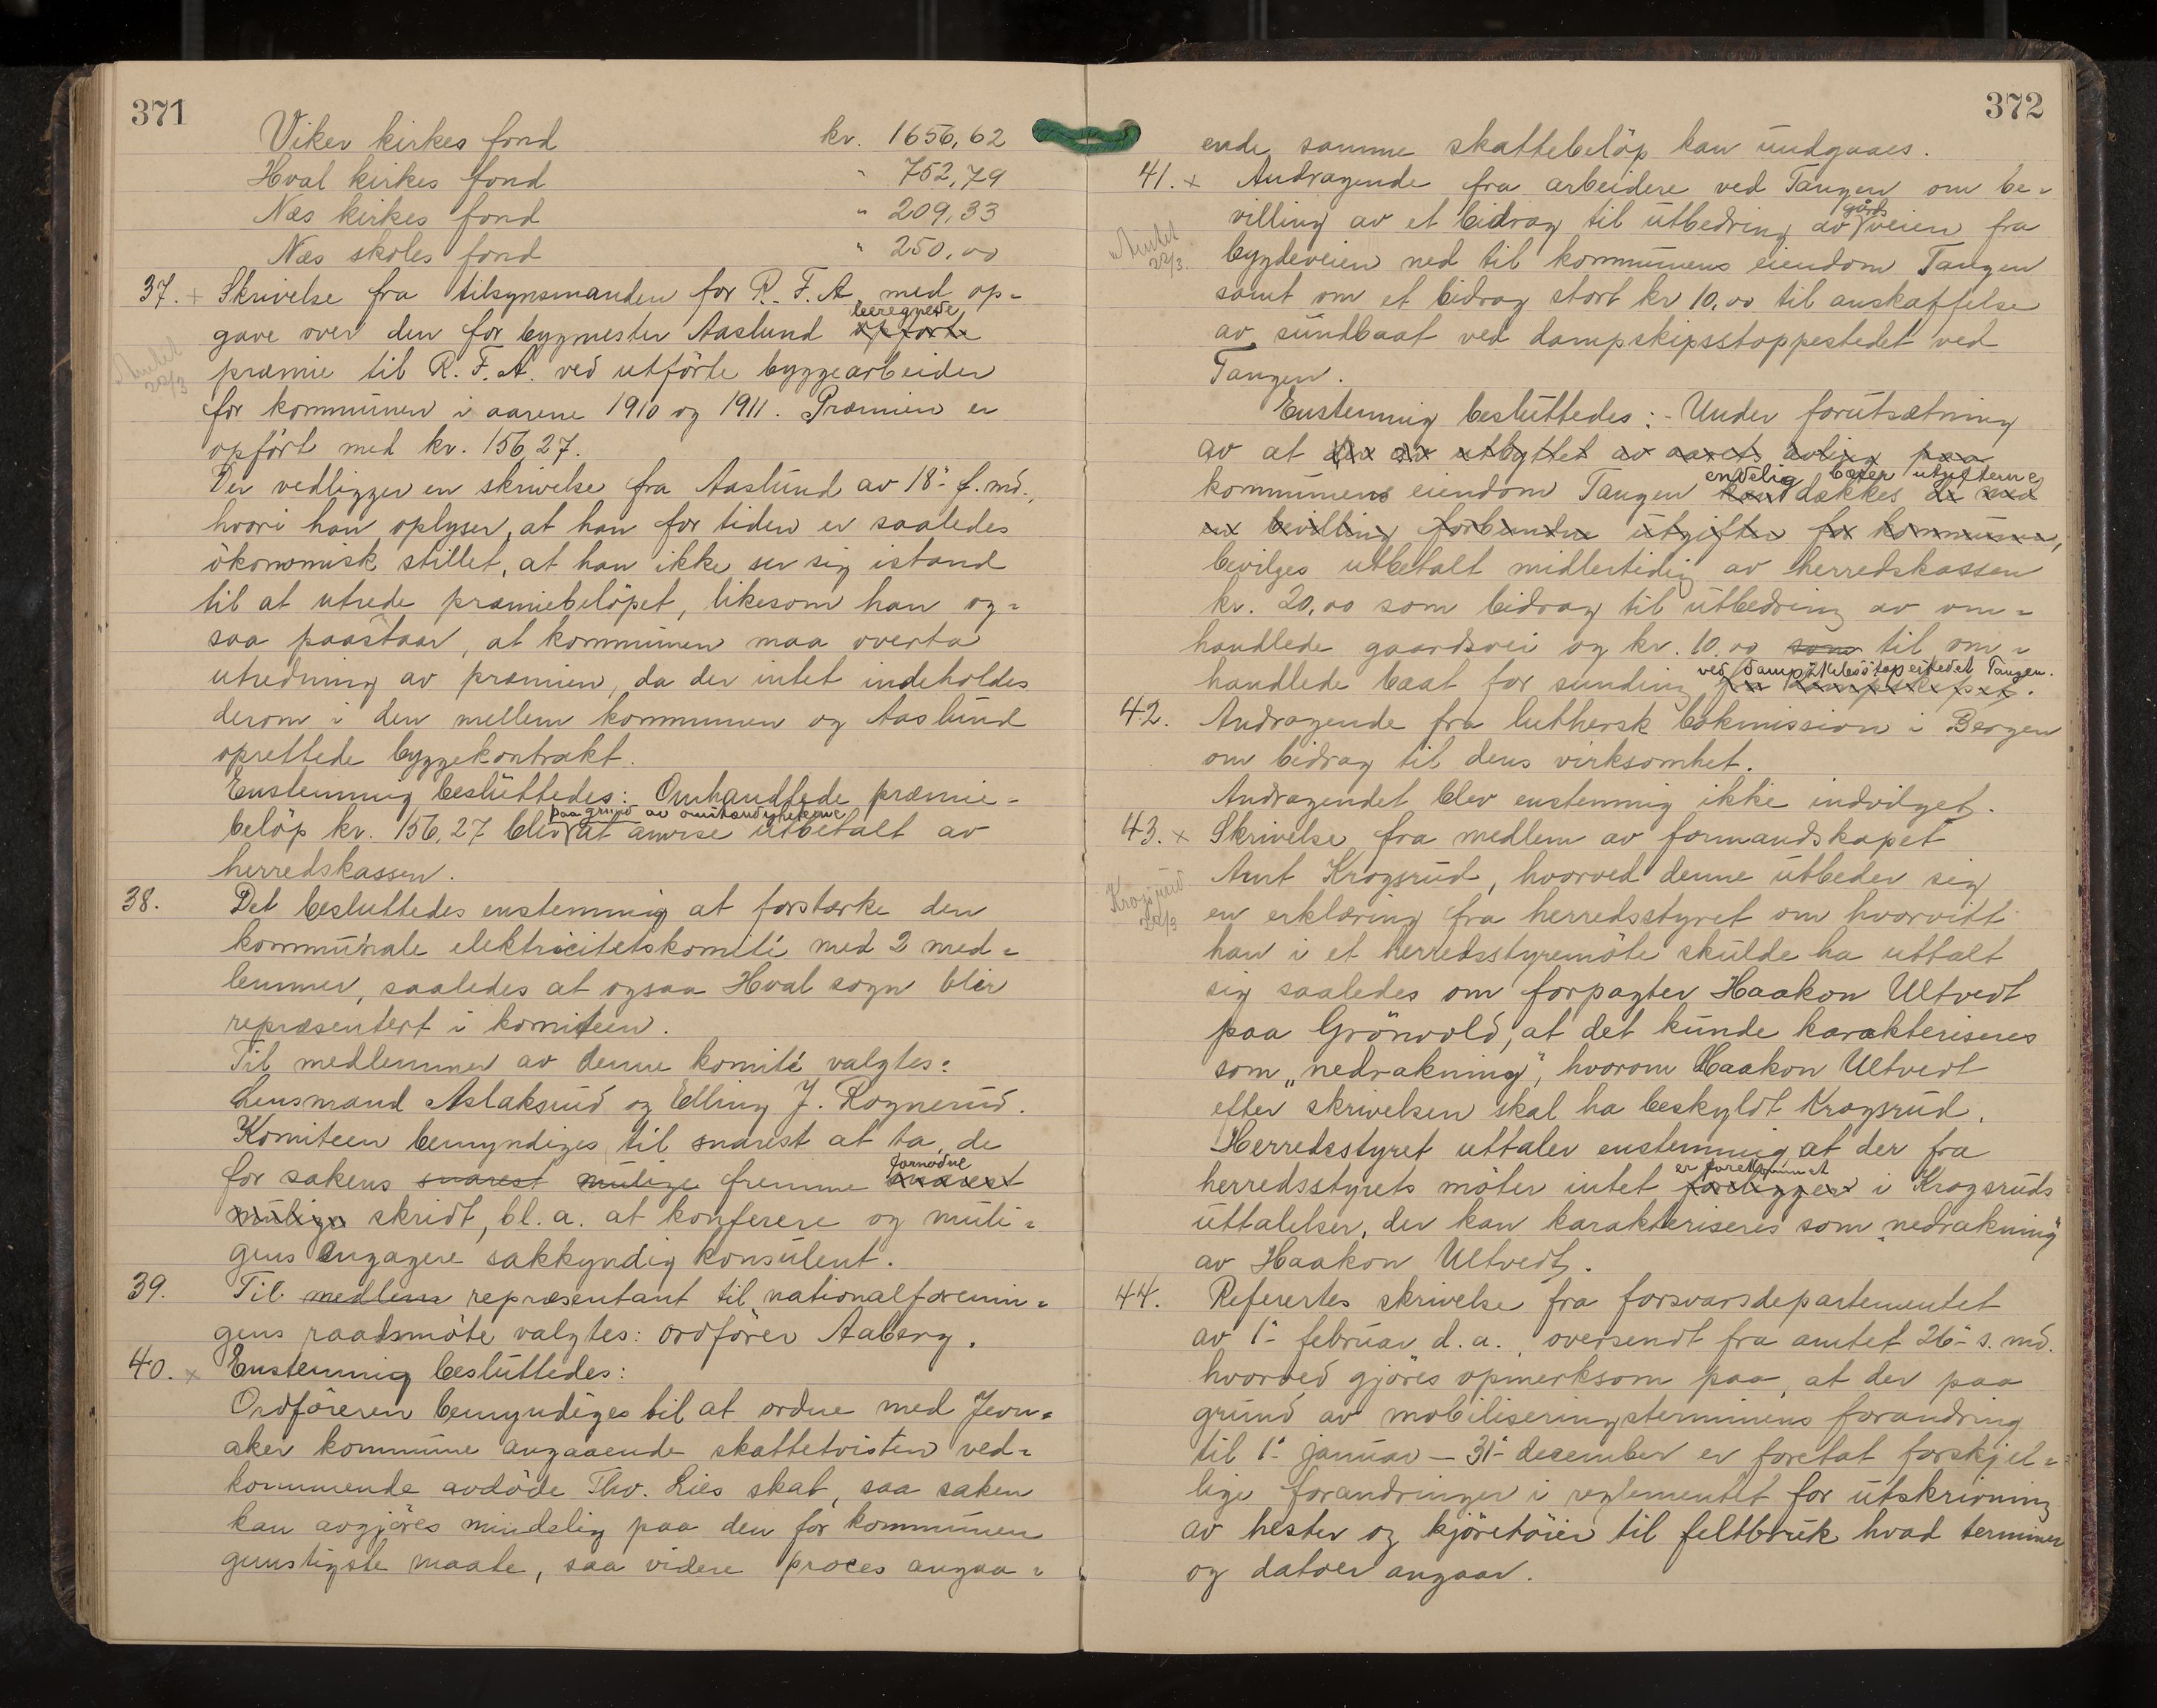 371
Viker kirkes fond kr. 1656,62
Hval kirkes fond " 752,79
Næs kirkes fond " 209,33
Næs skoles fond " 250,00
37. + Skrivelse fra tilsynsmanden for R. F. A. med op-
beregnede
gave over den for bygmester Aaslund opførte
præmie til R. F. A. ved utförte byggearbeider
22/3
for kommunen i aarene 1910 og 1911. Præmien er
opfört med kr. 156,27.
Der vedligger en skrivelse fra Aaslund av 18- f. md.,
hvori han oplyser, at han for tiden er saaledes
ökonomisk stillet, at han ikke ser sig istand
til at utrede præmiebelöpet, likesom han og-
saa paastaar, at kommunen maa overta
utredning av præmien, da der intet indeholdes
derom i den mellem kommunen og Aaslund
oprettede byggekontrakt.
Enstemmig besluttedes: Omhandlede præmie-
paa grund av omstændighetene
belöp kr. 156,27 blev at anvise utbetalt av
herredskassen.
38. Det besluttedes enstemmig at forstærke den
kommunale elektricitetskomité med 2 med-
lemmer, saaledes at ogsaa Hval sogn blir
repræsentert i komiteen.
Til medlemmer av denne komité valgtes:
Lensmand Aslaksrud og Elling J. Rognerud.
Komiteen bemyndiges til snarest at ta de
fornödne
for sakens snarest mulige fremme snarest
mulige skridt, bl. a. at konferere og muli-
gens engagere sakkyndig konsulent.
39. Til medlem repræsentant til nationalforenin-
gens raadsmöte valgtes: ordförer Aaberg.
40. x Enstemmig besluttedes:
Ordföreren bemyndiges til at ordne med Jevn-
aker kommune angaaende skattetvisten ved-
kommende avdöde Thv. Lies skat, saa saken
kan avgjöres mindelig paa den for kommunen
gunstigste maate, saa videre proces angaa-
372
ende samme skattebelöp kan undgaaes.
41. x Andragende fra arbeidere ved Tangen om be-
gårds
villing av et bidrag til utbedring av veien fra
22/3.
bygdeveien ned til kommunens eiendom Tangen
samt om et bidrag stort kr 10,00 til anskaffelse
av sundbaat ved dampskipsstoppestedet ved
Tangen.
Enstemmig besluttedes: - Under forutsætning
av at den av utbyttet av aarets avling paa
endelig bærer utgifterne
kommunens eiendom Tangen kan dækkes de med
en bevilling forbundne utgifter for kommunen,
bevilges utbetalt midlertidig av herredskassen
kr. 20,00 som bidrag til utbedring av om-
handlede gaardsvei og kr. 10,00 som til om-
ved dampskibsstopestedet Tangen.
handlede baat for sunding fra dampskipet.
42. Andragende fra luthersk bokmission i Bergen
om bidrag til dens virksomhet.
Andragendet blev enstemmig ikke indvilget.
43. x Skrivelse fra medlem av formandskapet
Arnt Krogsrud, hvorved denne utbeder sig
Krogsrud
22/3
en erklæring fra herredsstyret om hvorvidt
han i et herredsstyremöte skulde ha uttalt
sig saaledes om forpagter Haakon Ultvedt
paa Grönvold, at det kunde karakteriseres
som „nedrakning", hvorom Haakon Ultvedt
efter skrivelsen skal ha beskyldt Krogsrud.
Herredsstyret uttaler enstemmig, at der fra
er forekommet
herredsstyrets möter intet foreligger i Krogsruds
uttalelser, der kan karakteriseres som „nedrakning"
av Haakon Ultvedt.
44. Refertes skrivelse fra forsvarsdepartementet
av 1- februar d. a., oversendt fra amtet 26- s. md.
hvorved gjöres opmerksom paa, at der paa
grund av mobiliseringsterminens forandring
til 1- januar – 31- december er foretat forskjel-
lige forandringer i reglementet for utskrivning
av hester og kjöretöier til feltbruk hvad terminer
og datoer angaar.